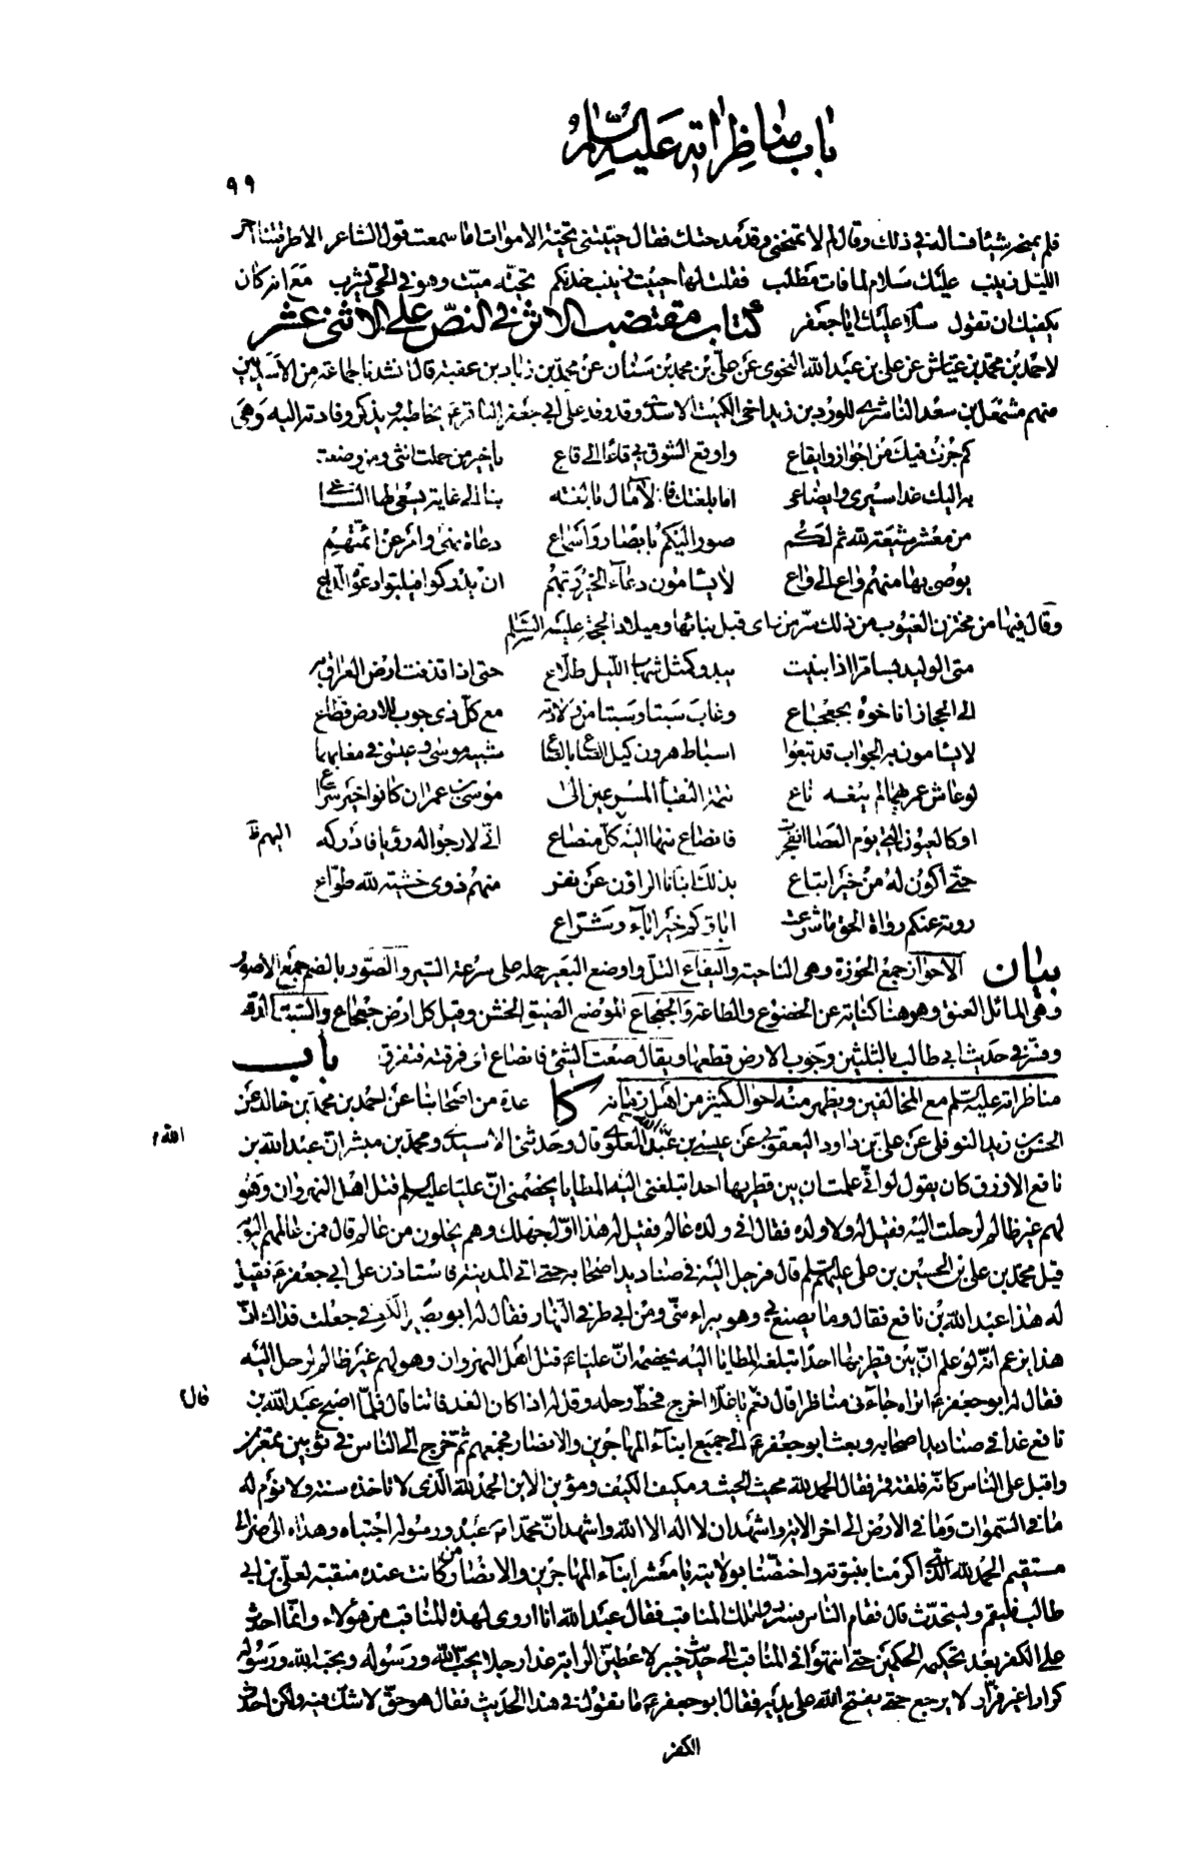 باب مناظراته عليه السلام
٩٩
فلم يمنحه شيئا فسأله في ذلك وقال لم لا تمنحني وقد مدحتك فقال حييتني بتحية الاموات اما سمعت قول الشاعر الا طرقتنا آخر
الليل زينب عليك سلام لما فات مطلب فقلت لها حييت زينب خدنكم تحية ميت وهو في الحي يشرب مع انه كان
يكفيك ان تقول سلام عليك ابا جعفر كتاب مقتضب الاثر في النص على الاثنى عشر
لاحمد بن محمد بن عياش عن علي بن عبد الله النحوي عن علي بن محمد بن سنان عن محمد بن زياد بن عقبة قال انشدنا جماعة من الاسديين
منهم مشمعل بن سعد الناشري للورد بن زيد اخي الكميت الاسدي وقد وفد على ابي جعفر الباقر ع يخاطبه ويذكر وفادته اليه وهي
كم جزت فيك من احواز وايفاع واوقع الشوق بي قاعا الى قاع يا خير من حملت انثى ومن وضعت
به اليك غدا سيري وايضاعي اما بلغتك فالآمال بالغة بنا الى غاية يسعى لها الساعي
من معشر شيعة لله ثم لكم صور اليكم بابصار واسماع دعاة نهي وامر عن ائمتهم
يوصي بها منهم واع الى واع لا يسأمون دعاء الخير ربهم ان يدركوا فيلبوا دعوة الداعي
وقال فيها من مخزن الغيوب من ذلك سر من راى قبل بنائها وميلاد الحجة عليه السلام
متى الوليد بسامرا اذا بنيت يبدو كمثل شهاب الليل طلاع حتى اذا قذفت ارض العراق به
الى الحجاز اناخوه بجعجاع وغاب سبتا وسبتا من ولادته مع كل ذي جوب للارض قطاع
لا يسأمون به الجواب قد تبعوا اسباط هرون كيل الصاع بالصاع شبيه موسى وعيسى في مغابهما
لو عاش عمريهما لم ينعه ناع تتمة النقباء المسرعين الى موسى بن عمران كانوا خير سراع
او كالعيون التي يوم العصا انفجرت فانصاع منها اليه كل منصاع اني لارجو له رؤيا فادركه
اليهم ظ
حتى اكون له من خير اتباع بذلك انبأنا الراوون عن نفر منهم ذوي خشية لله طواع
روته عنكم رواة الحق ما شرعت آباؤكم خير آباء وشراع
بيان الاحواز جمع الحوزة وهي الناحية واليفاع التل واوضع البعير حمله على سرعة السير والصور بالضم جمع الاصور
وهي المائل العنق وهو هنا كناية عن الخضوع والطاعة والجعجاع الموضع الضيق الخشن وقيل كل ارض جعجاع والسبت الدهر
وفسر في حديث ابي طالب بالثلثين وجوب الارض قطعها ويقال صعت الشئ فانصاع اي فرقته فتفرق باب
مناظراته عليه السلم مع المخالفين ويظهر منه احوال كثير من اهل زمانه كا عدة من اصحابنا عن احمد بن محمد بن خالد عن
الحسن بن زيد النوفلي عن علي بن داود اليعقوبي عن عيسى بن عبد الله العلوي قال وحدثني الاسيدي ومحمد بن مبشر ان عبد الله بن
نافع الازرق كان يقول لو اني علمت ان بين قطريها احدا تبلغني اليه المطايا يخصمني ان عليا عليه السلم قتل اهل النهروان وهو
لهم غير ظالم لرحلت اليه فقيل له ولا ولده فقال افي ولده عالم فقيل له هذا اول جهلك وهم يخلون من عالم قال فمن عالمهم اليوم
قيل محمد بن علي بن الحسين بن علي عليهم السلم قال فرحل اليه في صناديد اصحابه حتى اتى المدينة فاستاذن على ابي جعفر ع فقيل
له هذا عبد الله بن نافع فقال وما يصنع بي وهو يبرأ مني ومن ابي طرفي النهار فقال له ابو بصير الكوفي جعلت فداك ان
هذا يزعم انه لو علم ان بين قطريها احدا تبلغه المطايا اليه يخصمه ان عليا ع قتل اهل النهروان وهو لهم غير ظالم لرحل اليه
فقال له ابو جعفر ع اتراه جاءني مناظرا قال نعم يا غلام اخرج فحط رحله وقل له اذا كان الغد فاتنا قال فلما اصبح عبد الله بن
قال
نافع غدا في صناديد اصحابه وبعث ابو جعفر ع الى جميع ابناء المهاجرين والانصار فجمعهم ثم خرج الى الناس في ثوبين ممغرين
واقبل على الناس كانه فلقة قمر فقال الحمد لله محيث الحيث ومكيف الكيف ومؤين الاين الحمد لله الذي لا تاخذه سنة ولا نوم له
ما في السموات وما في الارض الى آخر الاية واشهد ان لا اله الا الله واشهد ان محمدا ص عبده ورسوله اجتباه وهداه الى صراط
مستقيم الحمد لله الذي اكرمنا بنبوته واختصنا بولايته يا معشر ابناء المهاجرين والانصار من كانت عنده منقبة لعلي بن ابي
طالب فليقم وليتحدث قال فقام الناس فسردوا تلك المناقب فقال عبد الله انا اروى لهذه المناقب من هؤلاء وانما احدث
علي الكفر بعد تحكيمه الحكمين حتى انتهوا في المناقب الى حديث خيبر لاعطين الراية غدا رجلا يحب الله ورسوله ويحبه الله ورسوله
كرارا غير فرار لا يرجع حتى يفتح الله على يديه فقال ابو جعفر ع ما تقول في هذا الحديث فقال هو حق لا شك فيه ولكن احدث
الكفر